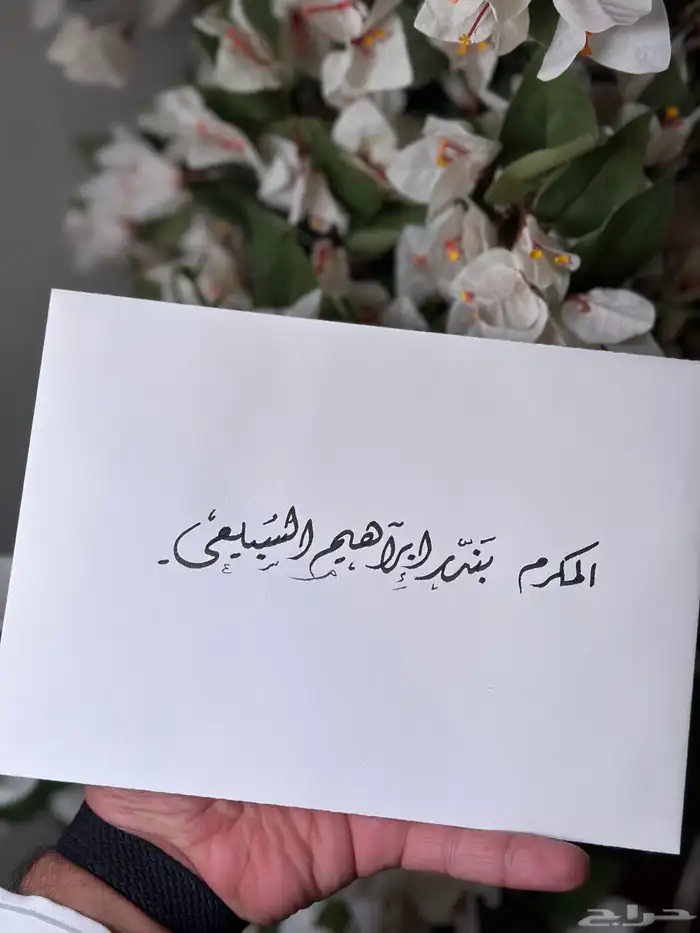 المكرم بندر ابراهيم السبيعي
حراج